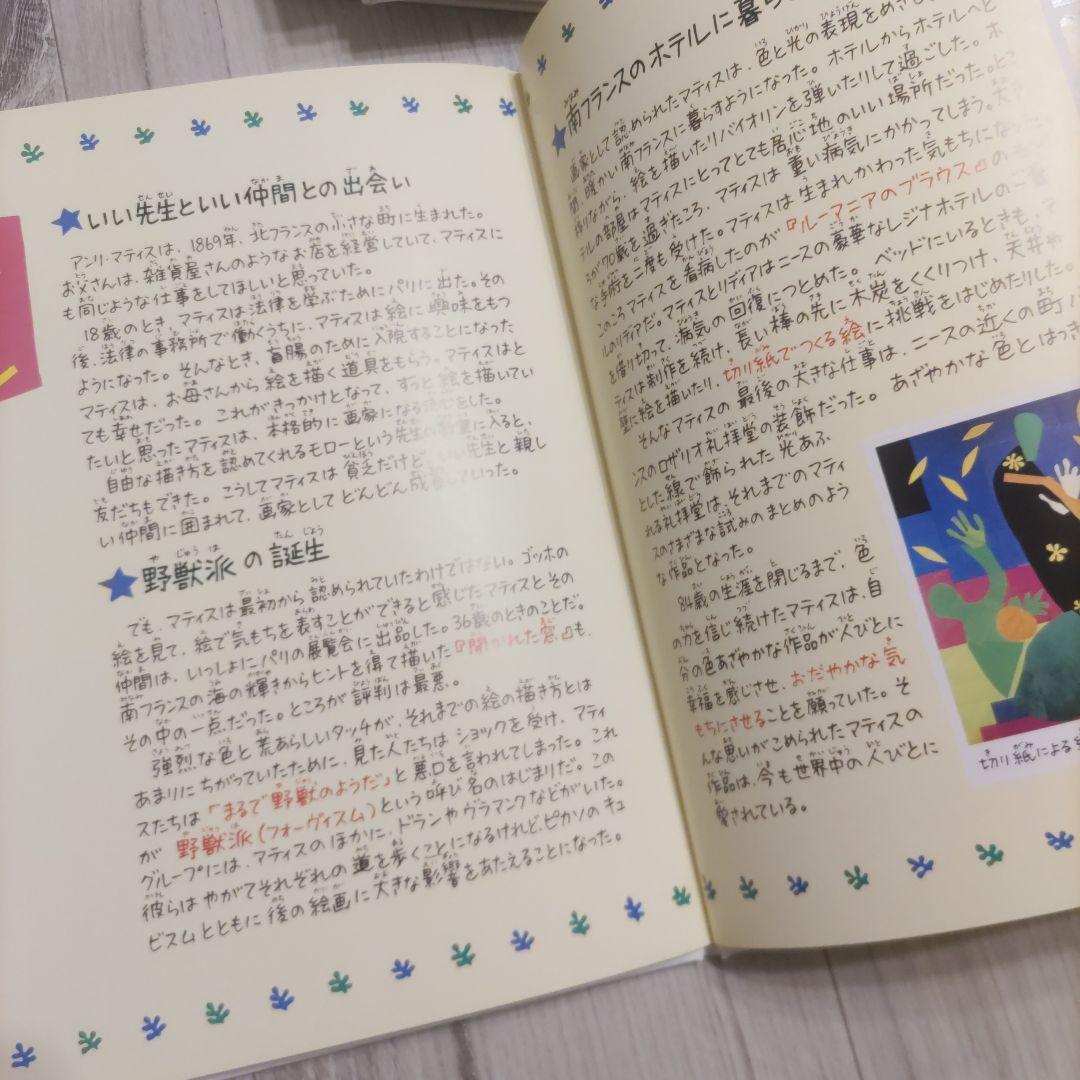 いい先生といい仲間との出会い
アンリ・マティスは、1869年、北フランスの小さな町に生まれた。
お父さんは、雑貨屋さんのようなお店を経営していて、マティスに
も同じような仕事をしてほしいと思っていた。
18歳のとき、マティスは法律を学ぶためにパリに出た。その
後、法律の事務所で働くうちに、マティスは絵に興味をもつ
ようになった。そんなとき、盲腸のために入院することになった
マティスは、お母さんから絵を描く道具をもらう。マティスはと
ても幸せだった。これがきっかけとなって、ずっと絵を描いてい
たいと思ったマティスは、本格的に画家になる をした。
自由な描き方を認めてくれるモローという先生の教室に入ると、
友だちもできた。こうしてマティスは貧乏だけど、いい先生と親し
い仲間に囲まれて、画家としてどんどん成 していった。
野獣派の誕生
でも、マティスは最初から認められていたわけではない。ゴッホの
絵を見て、絵で気もちを表すことができると感じたマティスとその
仲間は、いっしょにパリの展覧会に出品した。36歳のときのことだ。
南フランスの海の輝きからヒントを得て描いた『開かれた窓』も、
その中の一点だった。ところが評判は最悪。
強烈な色と荒あらしいタッチが、それまでの絵の描き方とは
あまりにちがっていたために、見た人たちはショックを受け、マティ
スたちは「まるで野獣のようだ」と悪口を言われてしまった。これ
が野獣派(フォーヴィスム)という呼び名のはじまりだ。この
グループには、マティスのほかに、ドランやヴラマンクなどがいた。
彼らはやがてそれぞれの道を歩くことになるけれど、ピカソのキュ
ビスムとともに後の絵画に大きな影響をあたえることになった。
南フランスのホテルに暮ら
画家として認められたマティスは、色と光の表現をめざし
間、暖かい南フランスに暮らすようになった。ホテルからホテルへと
移りながら、絵を描いたりバイオリンを弾いたりして過ごした。ホ
テルの部屋はマティスにとってとても居心地のいい場所だった。とこ
ろが70歳を過ぎたころ、マティスは重い病気にかかってしまう。大き
な手術を二度も受けた。マティスは生まれかわった気もちにな
このころマティスを看病したのが『ルーマニアのブラウス』のモ
ルのリディアだ。マティスとリディアはニースの豪華なレジナホテルの一室
を借り切って、病気の回復につとめた。ベッドにいるときも、マ
ティスは制作を続け、長い棒の先に木炭をくくりつけ、天井や
壁に絵を描いたり、切り紙でつくる絵に挑戦をはじめたりした。
そんなマティスの最後の大きな仕事は、ニースの近くの町
ンスのロザリオ礼拝堂の装飾だった。あざやかな色とはっき
とした線で飾られた光あふ
れる礼拝堂は、それまでのマティ
スのさまざまな試みのまとめのよう
な作品となった。
84歳の生涯を閉じるまで、色
の力を信じ続けたマティスは、自
分の色あざやかな作品が人びとに
幸福を感じさせ、おだやかな気
もちにさせることを願っていた。そ
んな思いがこめられたマティスの
作品は、今も世界中の人びとに
愛されている。
切り紙による